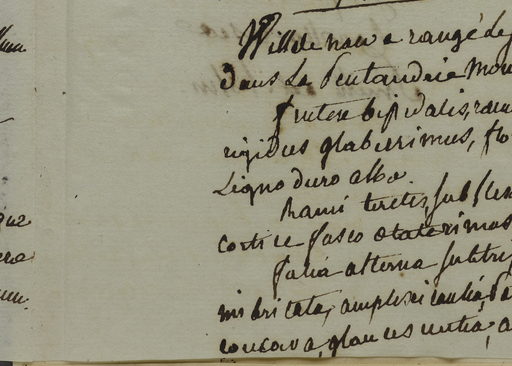 Willdenow a rangé de
dans La Pentandrie Mon
frutex bipedalis, ram
rigidus glaberrimus, flo
Ligno duro albo.
Rami teretes, subflex
cortice fusco
folia alterna subtri
imbricata, amplexicaulia,
concava, glaucescentia, a